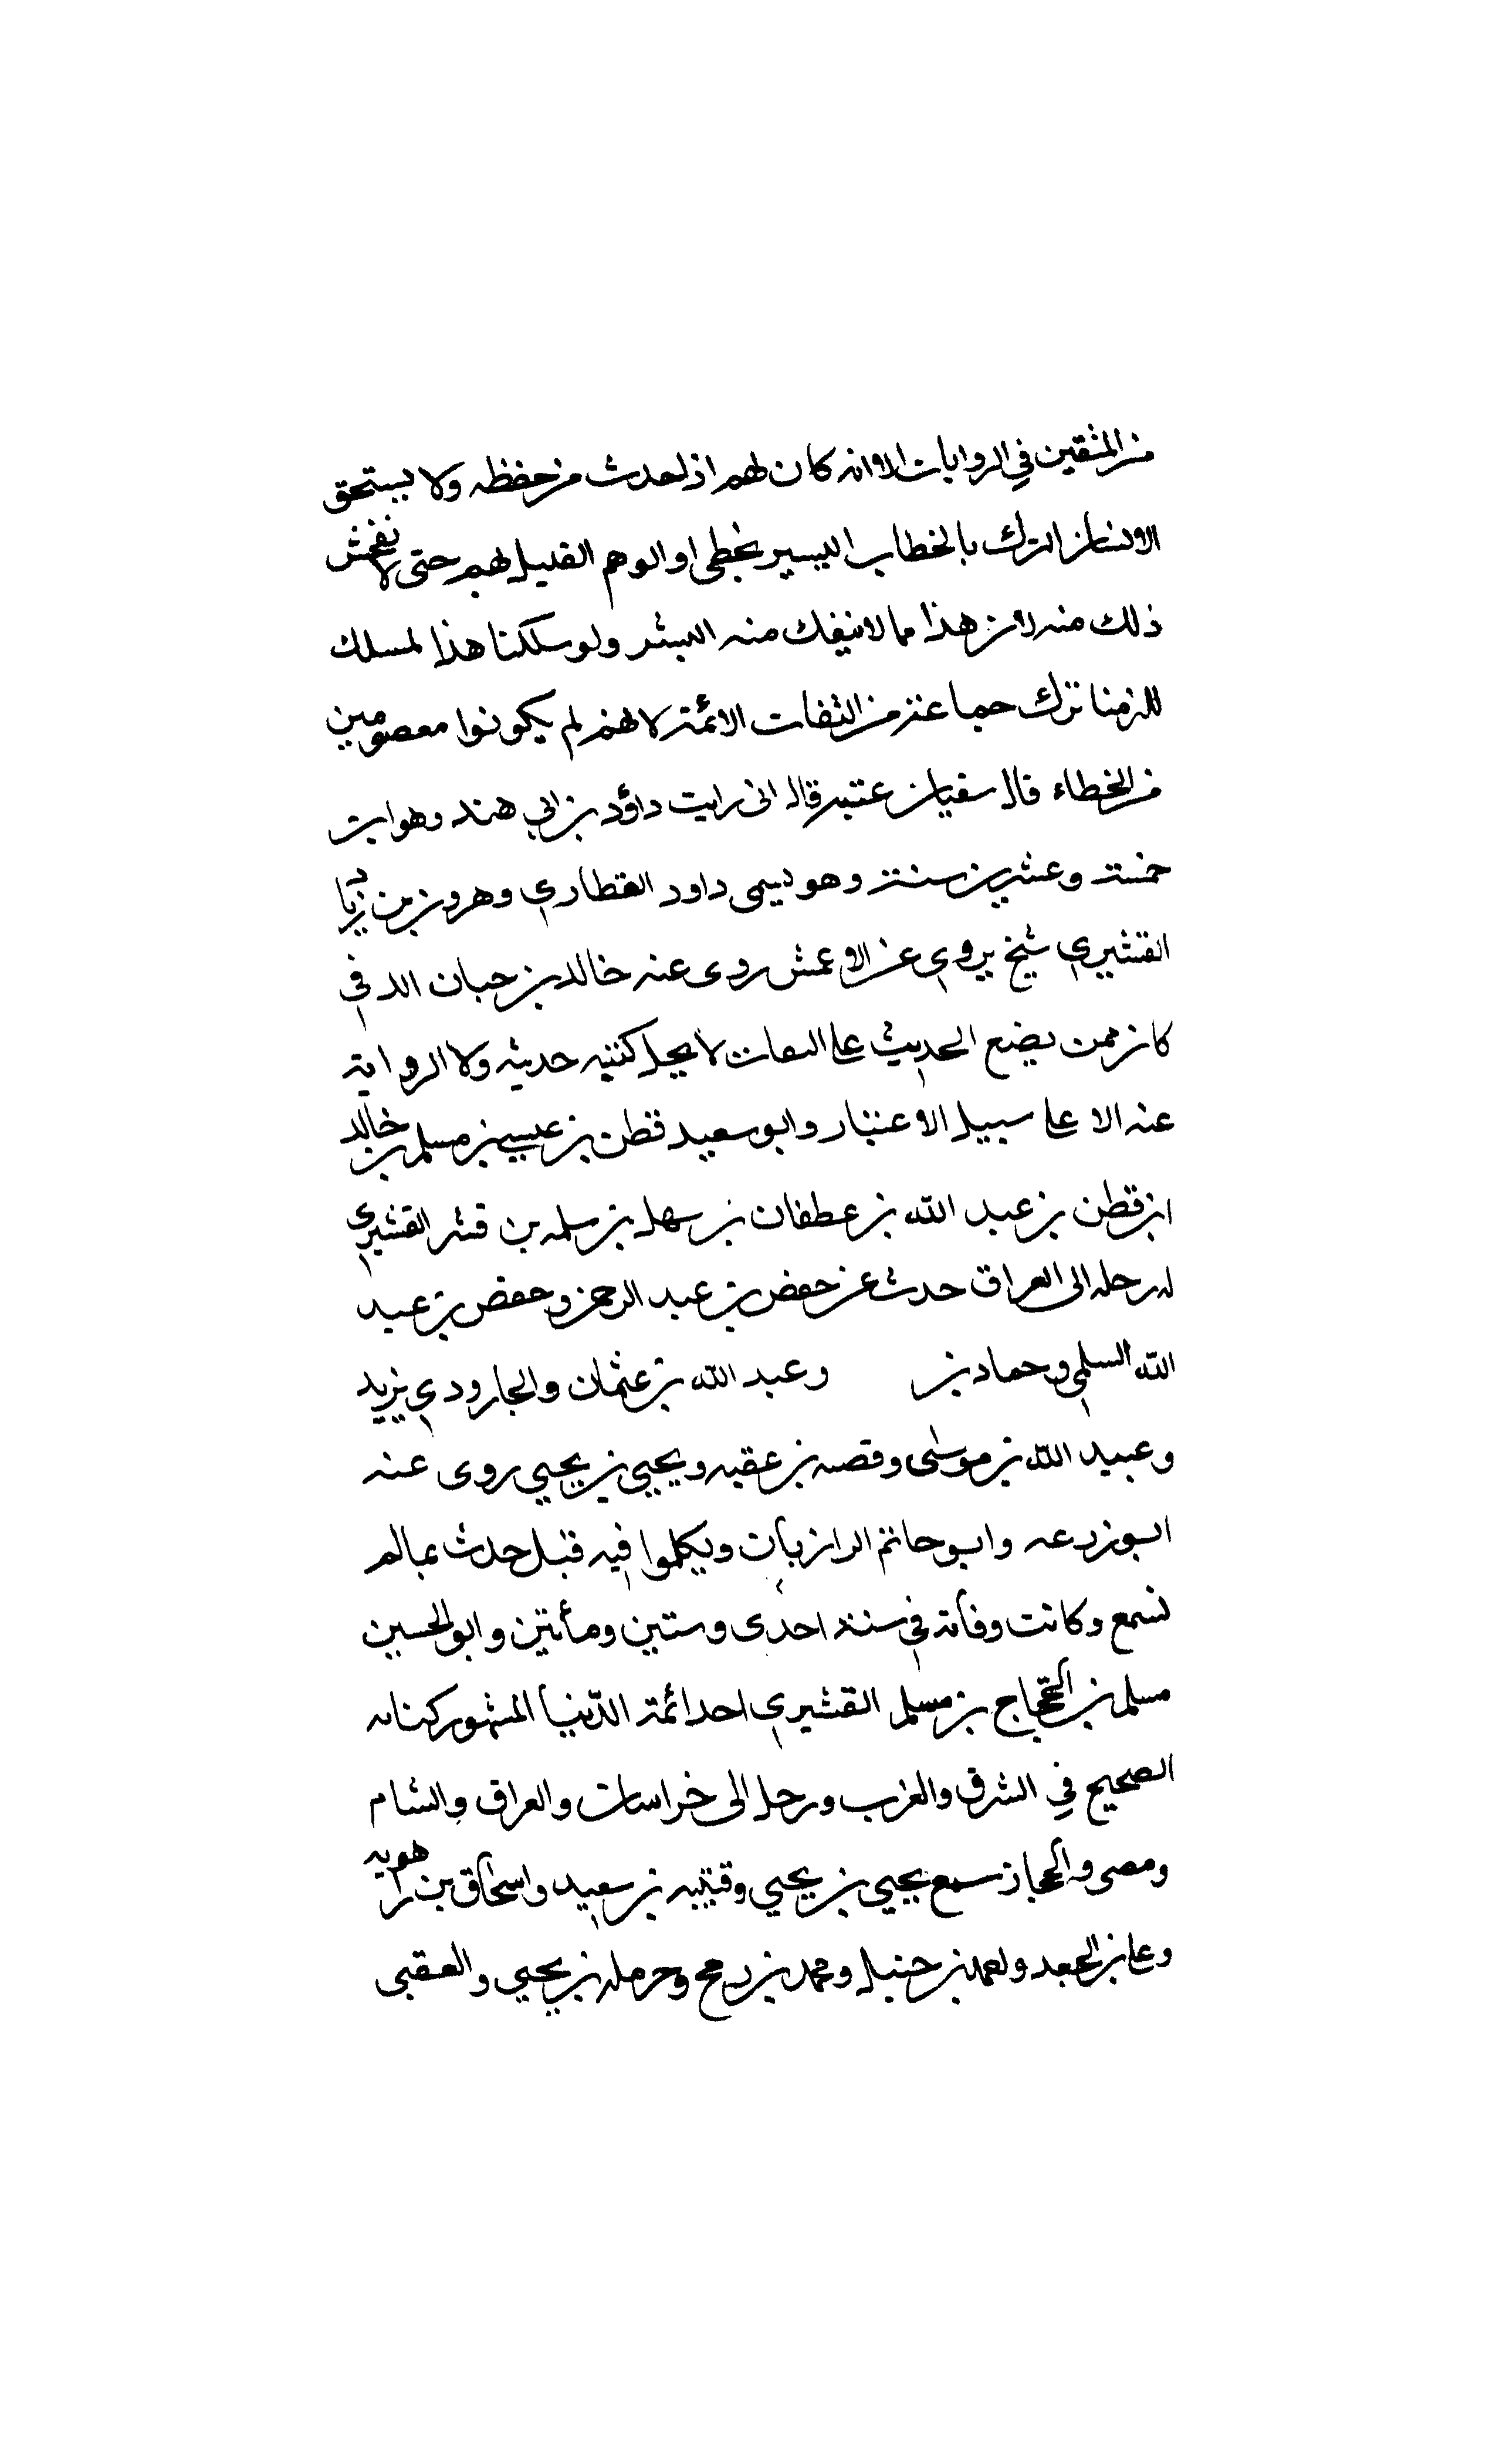 من المتقين في الروايات الا انه كان لهم اذا حدث من حفظه ولا يستحق
الانسان الترك بالخطاء اليسير يخطى او الوهم القليل لهم حتى لا نفحش
ذلك منه لان هذا مما لا ينفك منه البشر ولو سلكنا هذا المسلك
للزمنا ترك جماعة من الثقات الائمة لانهم لم يكونوا معصومين
من الخطاء قال سفيان بن عتبه قال انى رايت داؤد بن ابي هند وهو ابن
خمسة وعشرين سنة وهو يسمى داود القطاري وهرون بن زياد
القشيري شيخ يروي عن الاعمش روى عنه خالد بن حبان الدقي
كان ممن يضع الحديث على الثقات لا يحل كتبه حديثه ولا الرواية
عنه الا على سبيل الاعتبار وابو سعيد قطن بن عيسى بن مسلم بن خالد
ابن قطن بن عبد الله بن عطفان بن سهل بن سلمه بن قشر القشيري
له رحله الى العراق حدث عن حفض بن عبد الرحمن وحفض بن عبد
الله السلمي وحماد بن وعبد الله بن عثمان والجارودي يزيد
وعبيد الله بن موسى وقصه بن عقبه ويحيي بن يحيي روى عنه
ابو زرعه وابو حاتم الرازيان ويكلموا فيه قبل حدث بما لم
نسمع وكانت وفاته في سنة احدى وستين ومأتين وابو الحسين
مسلم بن الحجاج بن مسلم القشيري احد ائمة الدنيا المشهور كتابه
الصحيح في الشرق والغرب ورحل الى خراسان والعراق والشام
ومصر والحجاز سمع يحيي بن يحيي وقتيبه بن سعيد واسحاق بن راهويه
وعلى بن الجعد واحمد بن حنبل ومحمد بن رمح وحرمله بن يحيي والعقبى